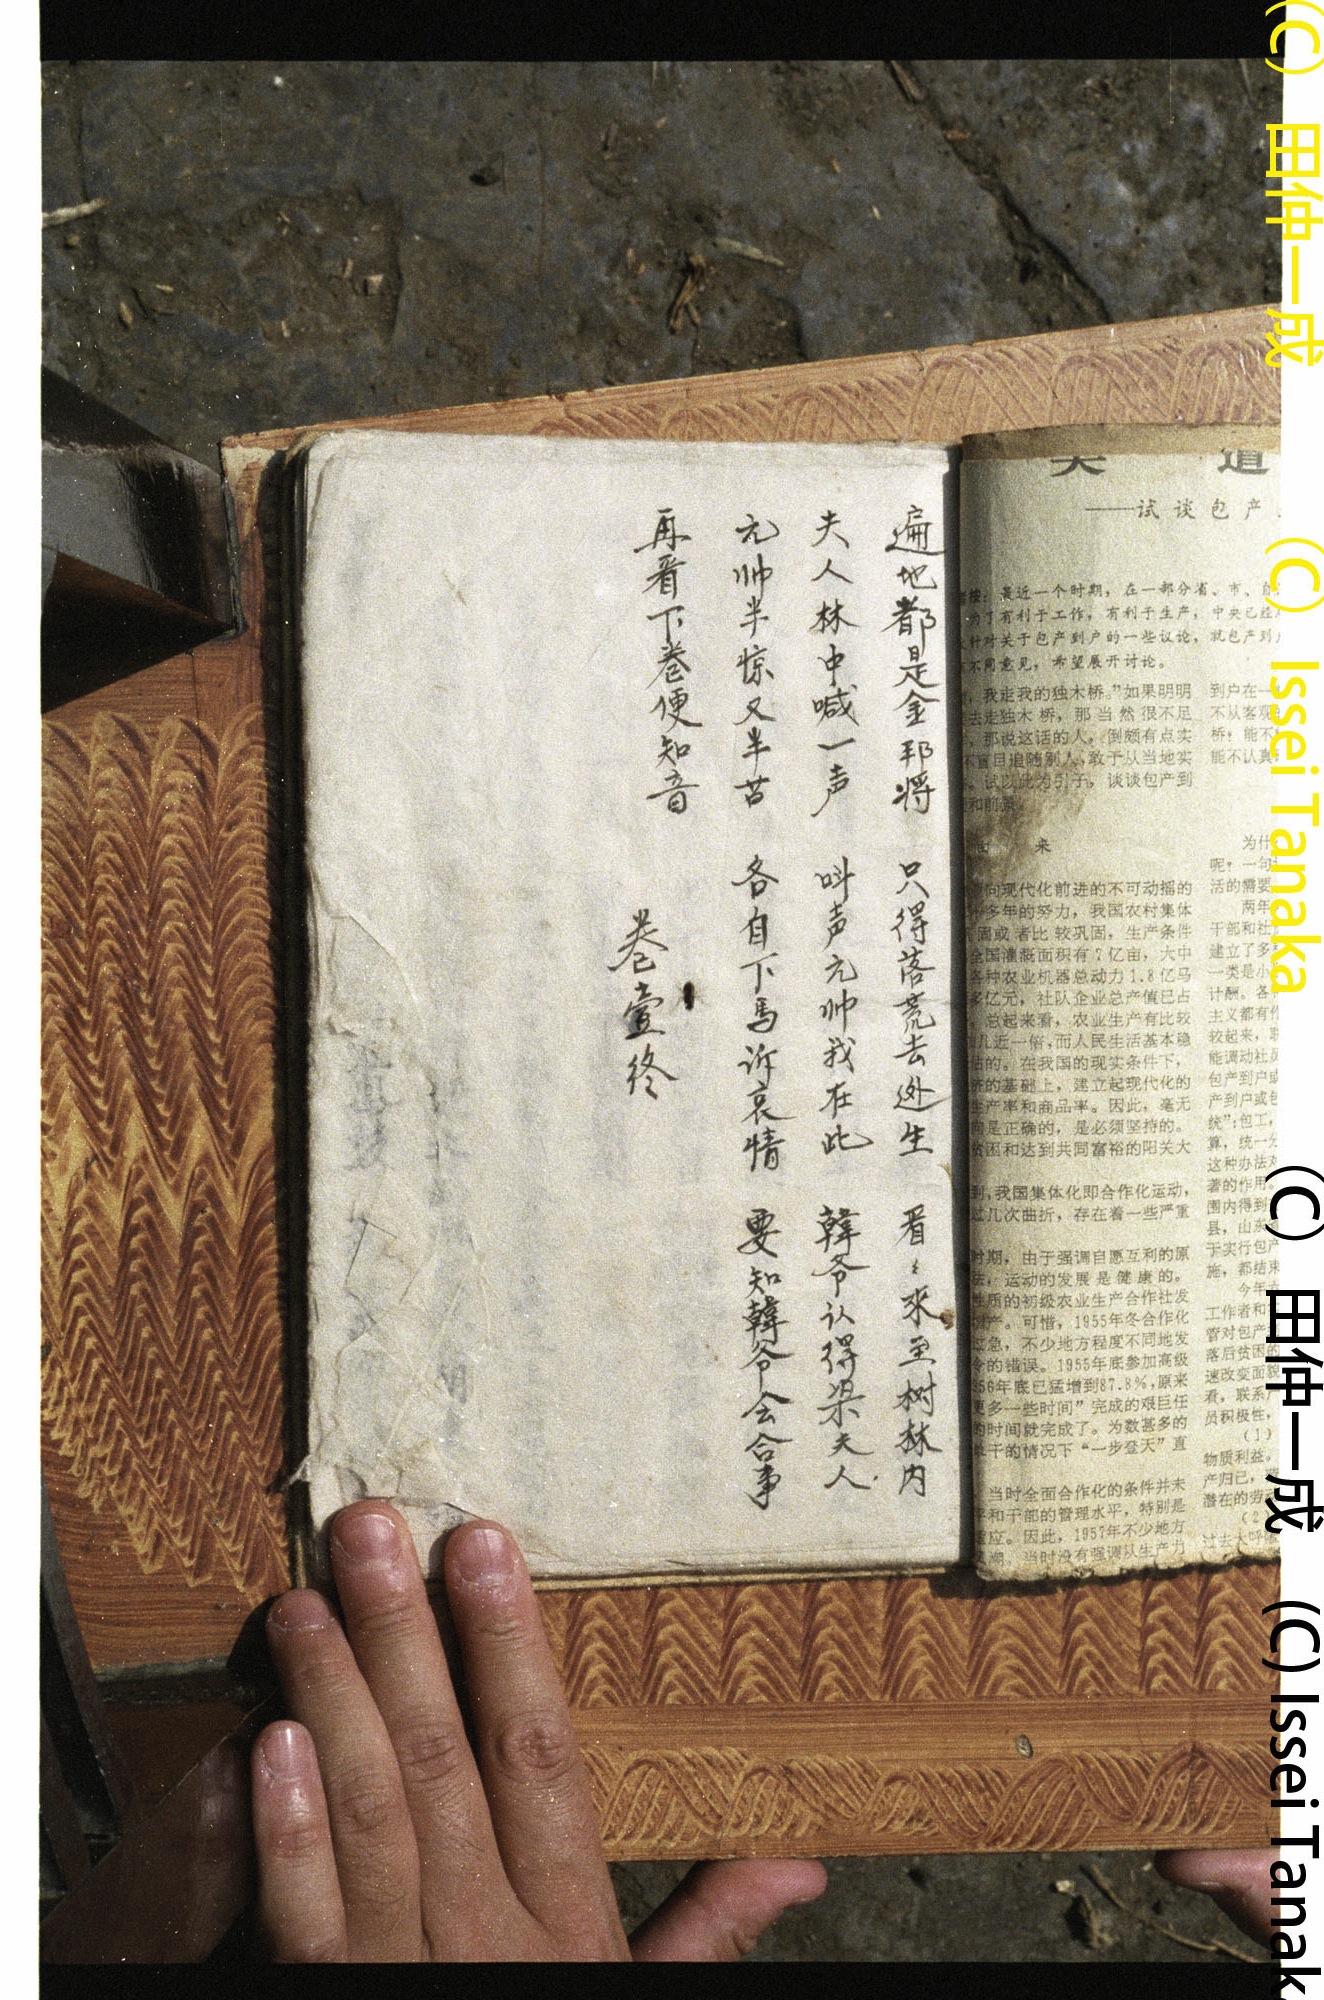 遍地都是金邦将 只得落荒去逃生 看〻來至树林内
夫人林中喊一声 叫声元帅我在此 韓爷认得梁夫人
元帅半惊又半苦 各自下馬诉哀情 要知韓爷会合事
再看下卷便知音
卷壹终
道
——试谈包产
最近一个时期，在一部分省、市、自
为了有利于工作，有利于生产，中央已经
针对关于包产到户的一些议论，就包产到
不同意见，希望展开讨论。
我走我的独木桥。”如果明明
去走独木桥，那当然很不足
那说这话的人，倒颇有点实
不盲目追随别人，敢于从当地实
试以此为引子，谈谈包产到
和前景
由 来
向现代化前进的不可动摇的
多年的努力，我国农村集体
固或者比较巩固，生产条件
全国灌溉面积有7亿亩，大中
各种农业机器总动力1.8亿马
多亿元，社队企业总产值已占
总起来看，农业生产有比较
几近一倍，而人民生活基本稳
估的。在我国的现实条件下，
济的基础上，建立起现代化的
生产率和商品率。因此，毫无
向是正确的，是必须坚持的。
贫困和达到共同富裕的阳关大
到，我国集体化即合作化运动，
过几次曲折，存在着一些严重
时期，由于强调自愿互利的原
法，运动的发展是健康的。
性质的初级农业生产合作社发
产。可惜，1955年冬合作化
过急，不少地方程度不同地发
令的错误。1955年底参加高级
56年底已猛增到87.8%，原来
更多一些时间”完成的艰巨任
的时间就完成了。为数甚多的
若干的情况下“一步登天”直
当时全面合作化的条件并未
平和干部的管理水平，特别是
应。因此，1957年不少地方
潮，当时没有强调从生产力
到户在一
不从客观
桥？能不
能不认真
为什
呢？一句
活的需要
两年
干部和社
建立了多
一类是小
计酬。各
主义都有
较起来，联
能调动社员
包产到户或
产到户或包
统”；包工，
算，统一分
这种办法对
著的作用。
围内得到
县，山东
于实行包产
施，都结束
今年
工作者和
管对包产
落后贫困的
速改变面貌
看，联系产
员积极性，
（1）
物质利益。
产归己，
潜在的劳
（2）
过去大呼
(C) 田仲一成 (C) Issei Tanaka
(C) 田仲一成 (C) Issei Tanak